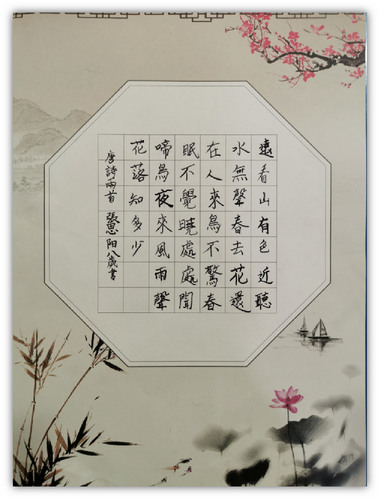 遠看山有色近聽
水無聲春去花還
在人來鳥不驚春
眠不覺曉處處聞
啼鳥夜來風雨聲
花落知多少
唐詩兩首 張思阳八歲書